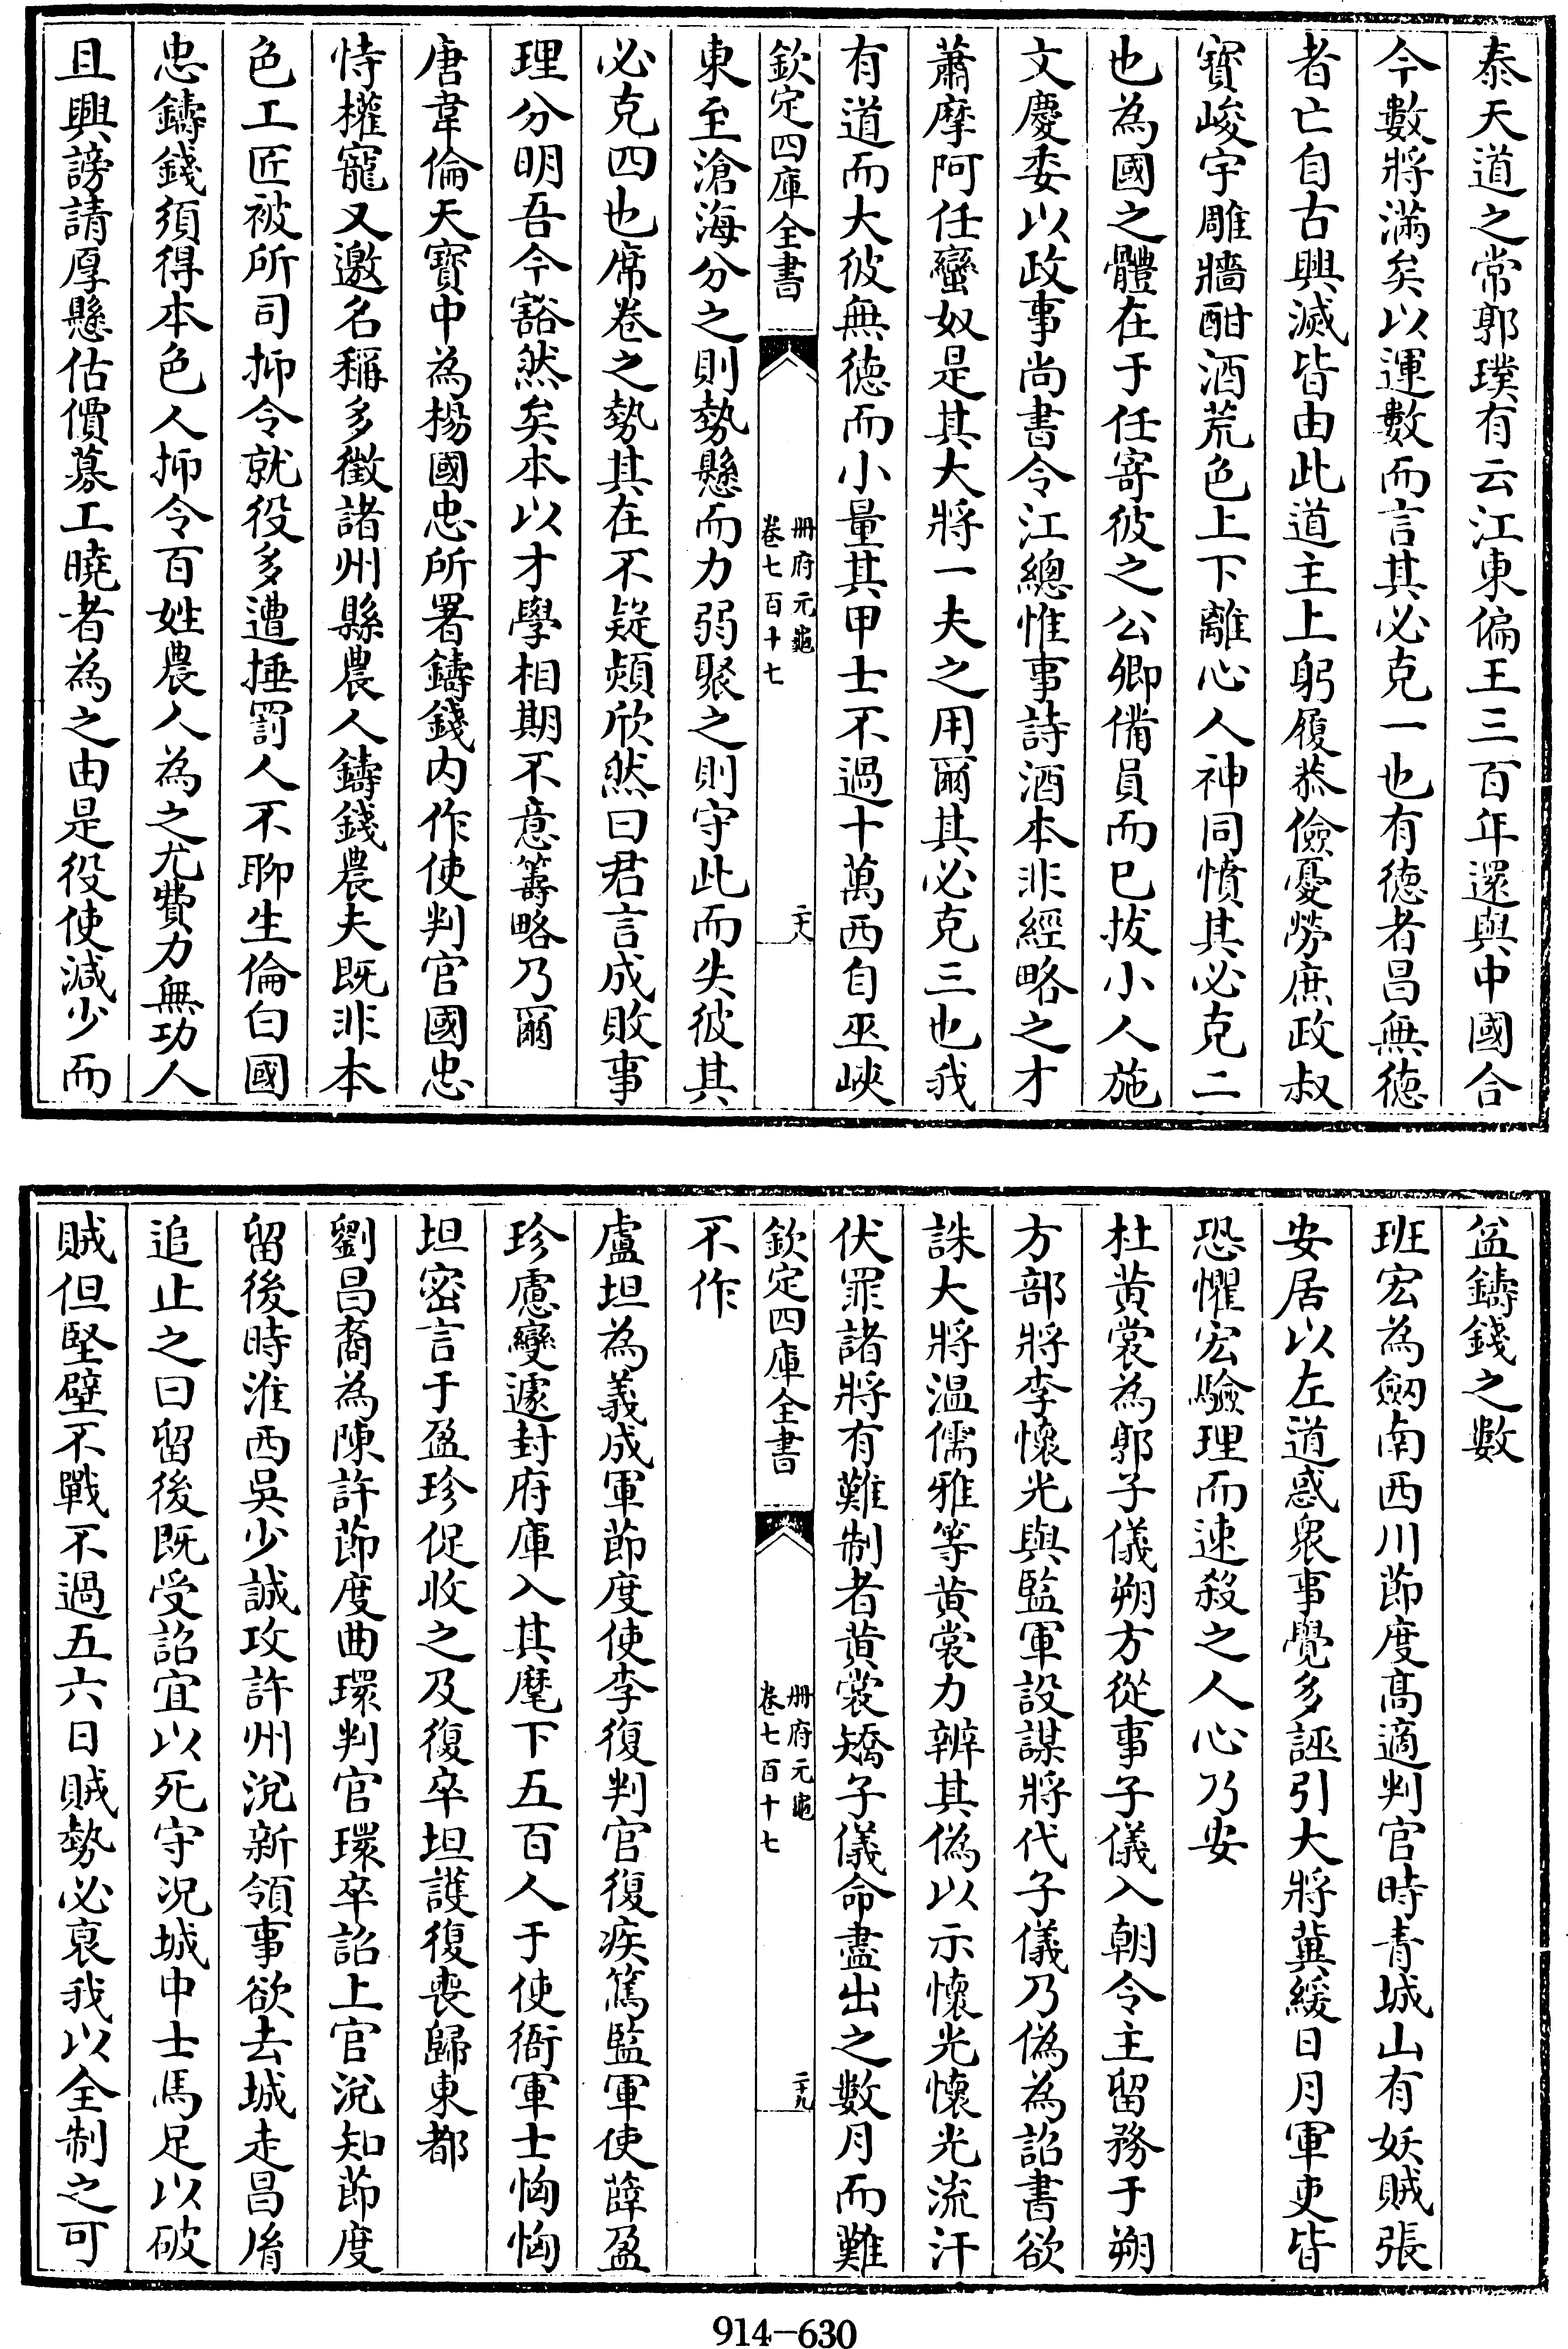 泰天道之常郭璞有云江東偏王三百年還與中國合
今數將滿矣以運數而言其必克一也有德者昌無德
者亡自古興滅皆由此道主上躬履恭儉憂勞庶政叔
寶峻宇雕牆酣酒荒色上下離心人神同憤其必克二
也為國之體在于任寄彼之公卿備員而已拔小人施
文慶委以政事尚書令江總惟事詩酒本非經略之才
蕭摩阿任蠻奴是其大將一夫之用爾其必克三也我
有道而大彼無德而小量其甲士不過十萬西自巫峽
欽定四庫全書
冊府元龜
卷七百十七
二十八
東至滄海分之則勢懸而力弱聚之則守此而失彼其
必克四也席卷之勢其在不疑熲欣然曰君言成敗事
理分明吾今豁然矣本以才學相期不意籌略乃爾
唐韋倫天寶中為楊國忠所署鑄錢内作使判官國忠
恃權寵又邀名稱多徵諸州縣農人鑄錢農夫既非本
色工匠被所司抑令就役多遭捶罰人不聊生倫白國
忠鑄錢須得本色人抑令百姓農人為之尤費力無功人
且興謗請厚懸估價募工曉者為之由是役使減少而
益鑄錢之數
班宏為劒南西川節度髙適判官時青城山有妖賊張
安居以左道惑衆事覺多誣引大將冀緩日月軍吏皆
恐懼宏驗理而速殺之人心乃安
杜黄裳為郭子儀朔方從事子儀入朝令主留務于朔
方部將李懷光與監軍設謀將代子儀乃偽為詔書欲
誅大將温儒雅等黄裳力辨其偽以示懷光懷光流汗
伏罪諸將有難制者黄裳矯子儀命盡出之數月而難
欽定四庫全書
冊府元龜
卷七百十七
二十九
不作
盧坦為義成軍節度使李復判官復疾篤監軍使薛盈
珍慮變遽封府庫入其麾下五百人于使衙軍士恟恟
坦密言于盈珍促收之及復卒坦護復喪歸東都
劉昌裔為陳許節度曲環判官環卒詔上官涗知節度
留後時淮西吳少誠攻許州涗新領事欲去城走昌裔
追止之曰留後既受詔宜以死守况城中士馬足以破
賊但堅壁不戰不過五六日賊勢必衰我以全制之可
914-630